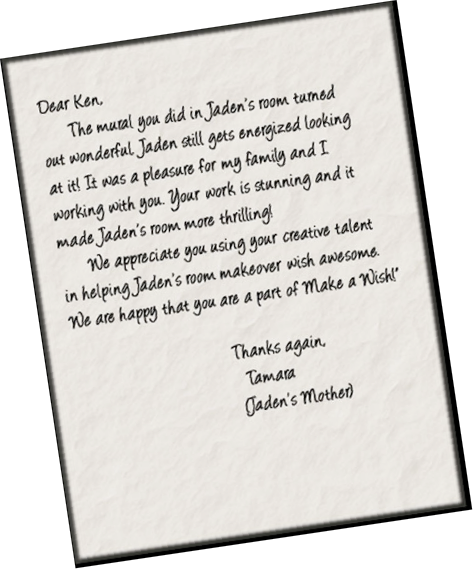 Dear Ken,
The mural you did in Jaden's room turned
out wonderful. Jaden still gets energized looking
at it! It was a pleasure for my family and I
working with you. Your work is stunning and it
made Jaden's room more thrilling!
We appreciate you using your creative talent
in helping Jaden's room makeover wish awesome.
We are happy that you are a part of Make a Wish!"
Thanks again,
Tamara
(Jaden's Mother)